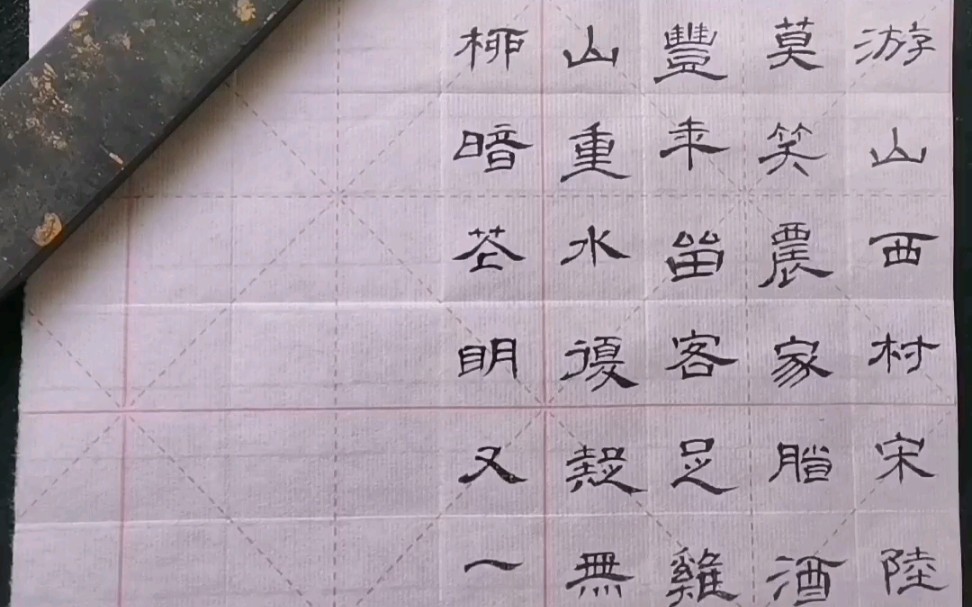 游山西村宋陸
莫笑農家臈酒
豐年留客足雞
山重水復疑無
柳暗花明又一